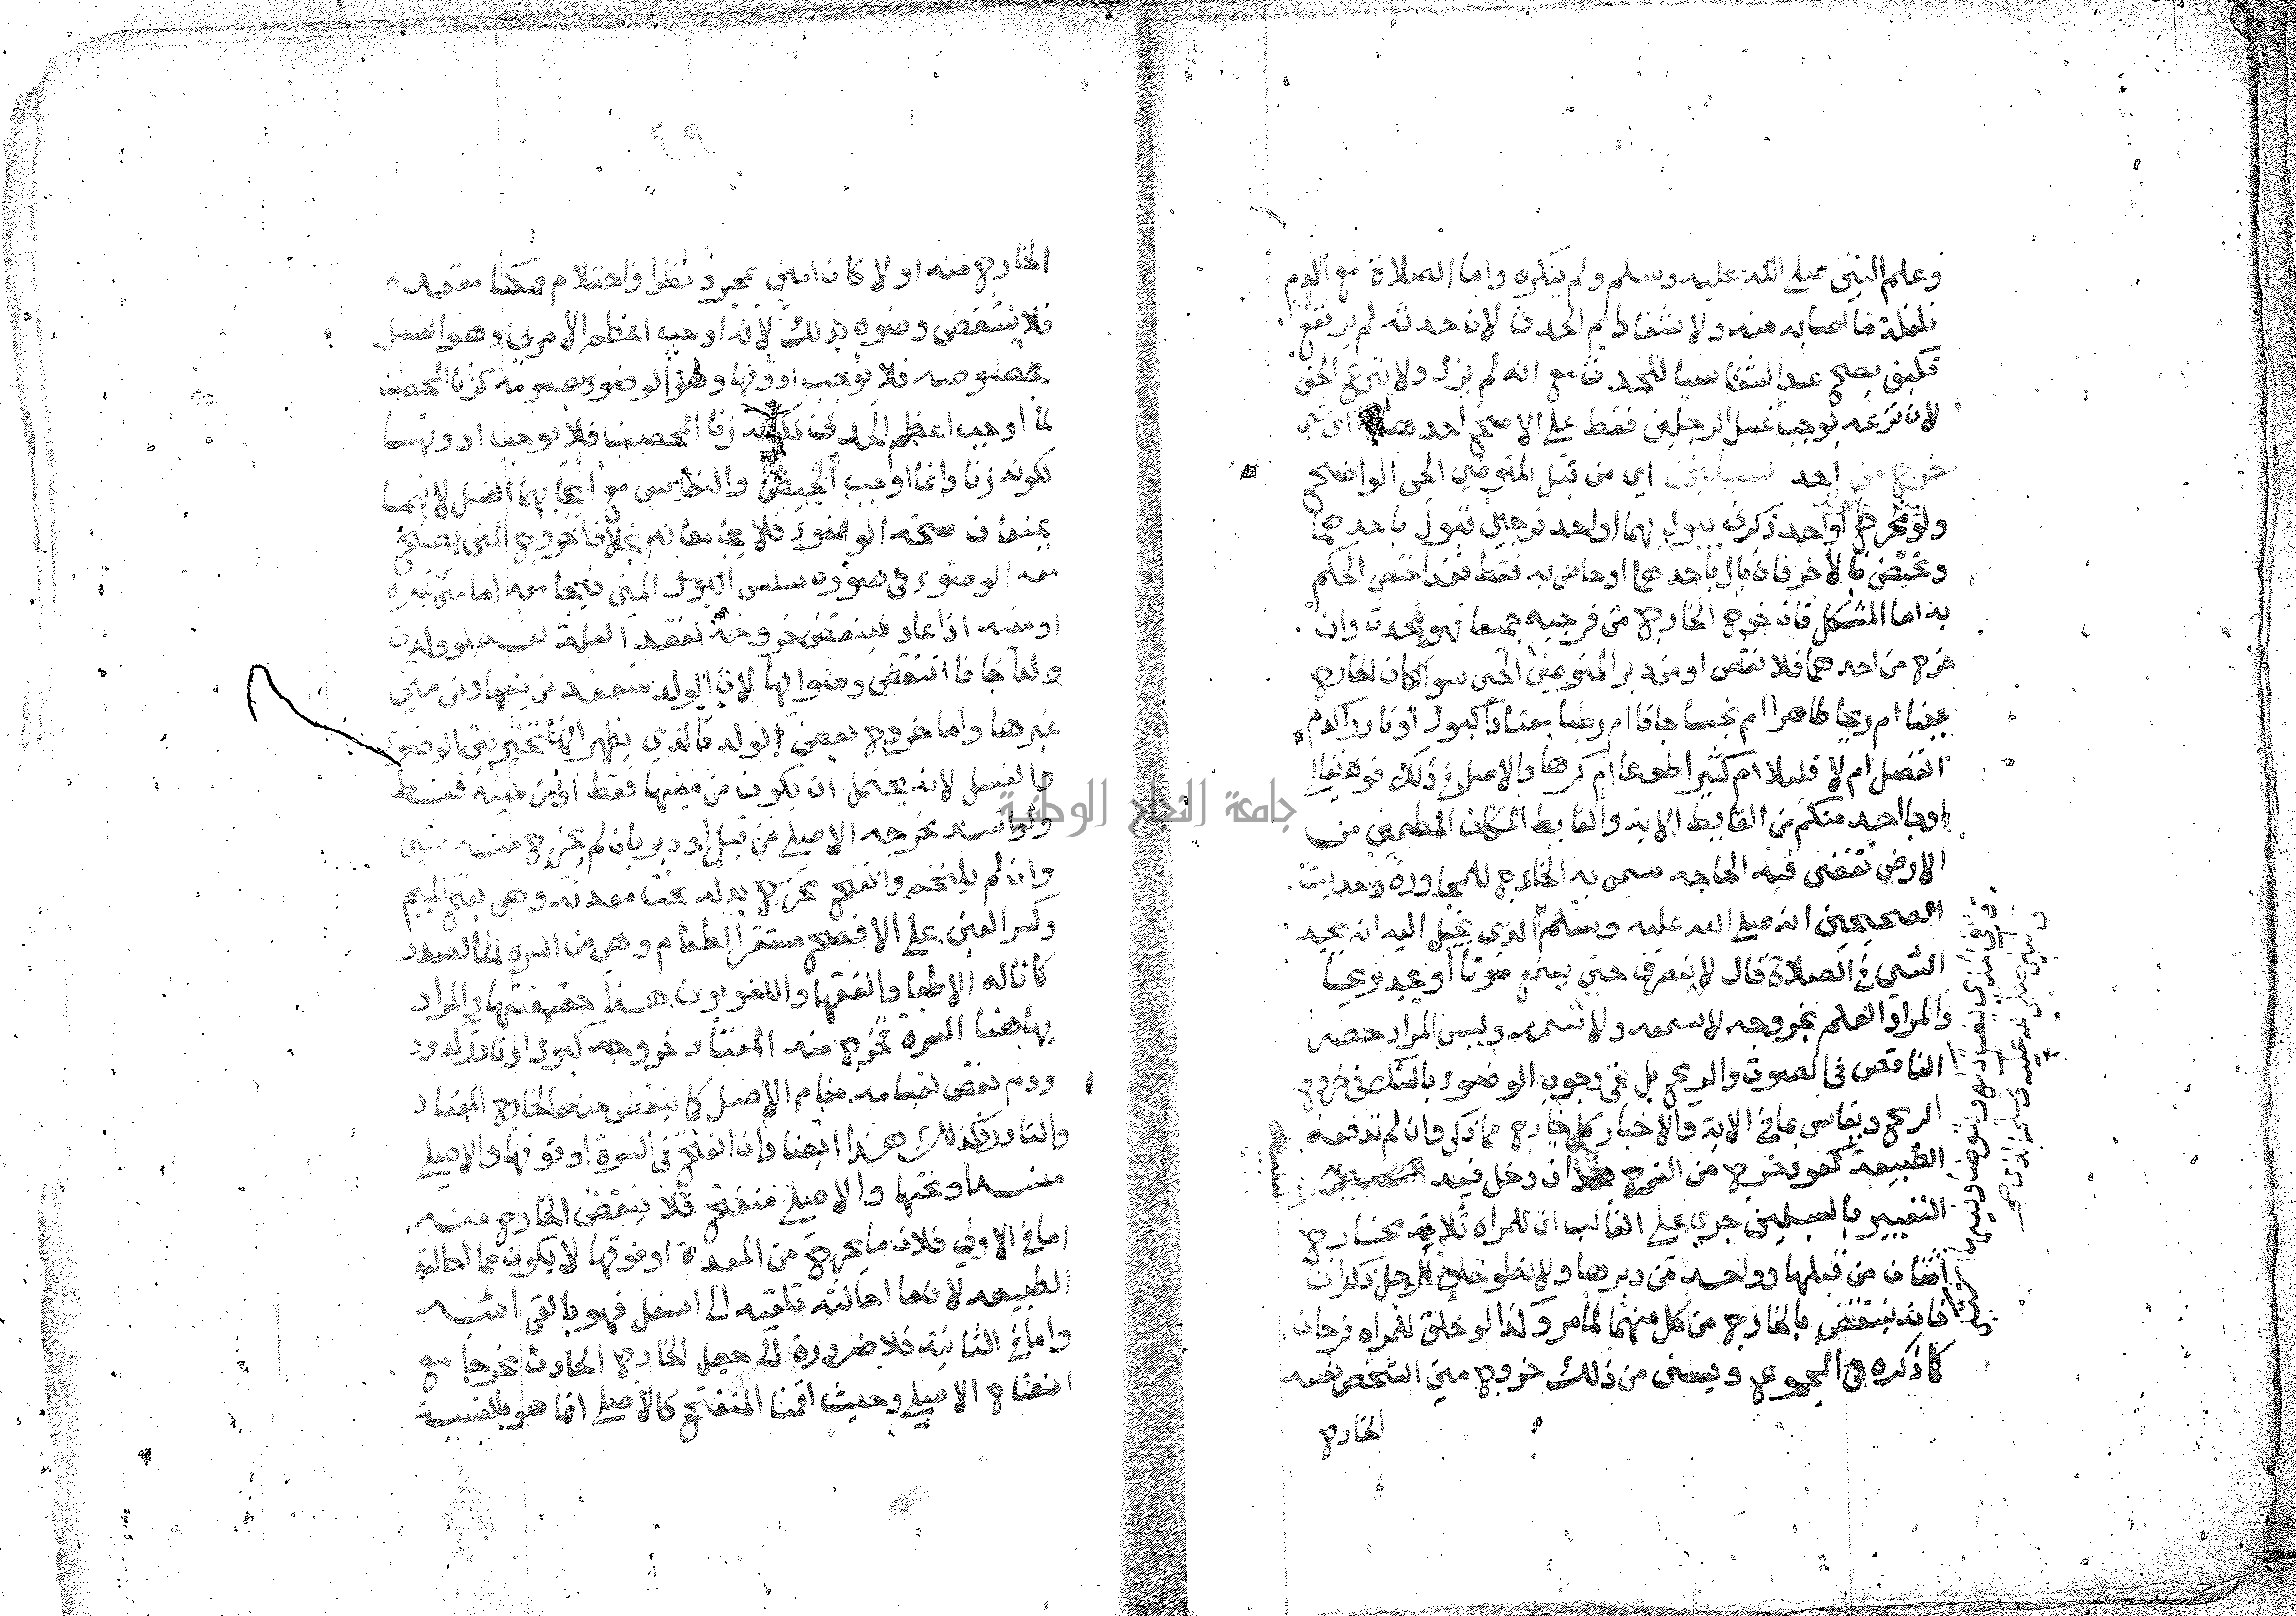 وعلم النبي صلي الله عليه وسلم ولم ينكره واما الصلاة مع الدم
فلقلة ما اصابه منه ولا شفا دايم الحدث لان حدثه لم يرتفع
فكيف يصح عد الشفا سببا للحدث مع انه لم يزل ولا بنزع الخف
لان نزعه يوجب غسل الرجلين فقط علي الاصح احدها اي شي
خرج من احد سبيليه اي من قبل المتوضي الحي الواضح
ولو مخرج او احد ذكرين يبول بهما او احد فرجين تبول باحدهما
وتحيض بالاخر فان بال باحدهما او حاض به فقط فقد اختص الحكم
به اما المشكل فان خرج الخارج من فرجيه جميعا فهو محدث وان
خرج من احدهما فلا نقض او من دبر المتوضي الحي سوا كان الخارج
عينا ام ريحا طاهرا ام نجسا جافا ام رطبا معتادا كبول او نادرا كدم
انفصل ام لا قليلا ام كثيرا طوعا ام كرها والاصل في ذلك قوله تعالي
او جا احد منكم من الغايط الاية والغايط المكان المطمين من
الارض تقضي فيه الحاجه سمي به الخارج للمجاورة وحديث
الصحيحين انه صلي الله عليه وسلم الذي يخيل اليه انه يجد
الشي في الصلاة قال لا ينصرف حتي يسمع صوتا او يجد ريحا
والمراد العلم بخروجه لا سمعه ولا شمه وليس المراد حصر
الناقض في الصوت والريح بل نفي وجوب الوضوء بالشك في خروج
الريح ويقاس بما في الاية والاخبار كل خارج مما ذكر وان لم تدفعه
الطبيعة كعود خرج من الفرج بعد ان دخل فيه
التعبير بالسبيلين جري علي الغالب ان للمراه ثلاثة مخارج
اثنان من قبلها وواحد من دبرها ولانه لو خلق للرجل ذكران
فانه ينتقض بالخارج من كل منهما لما مر وكذا لو خلق للمراه فرجان
كما ذكره في المجموع ويستثني من ذلك خروج مني الشخص نفسه
الخارج
٤٩
الخارج منه اولا كان امني بمجرد نظر او احتلام ممكنا مقعده
فلا ينتقض وضوه بذلك لانه اوجب اعظم الامرين وهو الغسل
بخصوصه فلا يوجب ادونهما وهو الوضوء بعمومه كزنا المحصن
لما اوجب اعظم الحدين لكونه زنا المحصن فلا يوجب ادونهما
لكونه زنا وانما اوجب الحيض والنفاس مع ايجابهما الغسل لانهما
يمنعان صحة الوضوء فلا يجامعانه بخلاف خروج المني يصح
معه الوضوء في صوره سلس المني فيجامعه اما مني غيره
او منيه اذا عاد فينقض خروجه لفقد العلة نعم لو ولدت
ولدا جافا انتقض وضوايها لان الولد منعقد من منيها ومن مني
غيرها واما خروج بعض الولد فالذي يظهر انها تتخير بين الوضوء
والغسل لانه يحتمل ان يكون من منيها فقط او من منيه فقط
ولو انسد مخرجه الاصلي من قبل او دبر بان لم يخرج منه شي
وان لم يلتحم وانفتح مخرج بدله تحت معدته وهي بفتح الميم
وكسر العين علي الافصح مستقر الطعام وهي من السره الي الصدر
كما قاله الاطبا والفقها واللغويون هذا حقيقتها والمراد
بها هنا السرة فخرج منه المعتاد خروجه كبول او نادر كدود
ودم نقض لقيامه مقام الاصلي كما ينقض منهما الخارج المعتاد
والنادر فكذلك هذا ايضا فان انفتح في السرة او فوقها والاصلي
منسد او تحتها والاصلي منفتح فلا ينقض الخارج منه
اما في الاولي فلان ما يخرج من المعدة او فوقها لا يكون مما احالته
الطبيعه لان ما احالته تلقيه الي اسفل فهو بالقي اشبه
واما في الثانية فلا ضرورة الي جعل الخارج الحادث مخرجا مع
انفتاح الاصلي وحيث اقمنا المنفتح كالاصلي انما هو بالنسبة
جامعة النجاح الوطنية